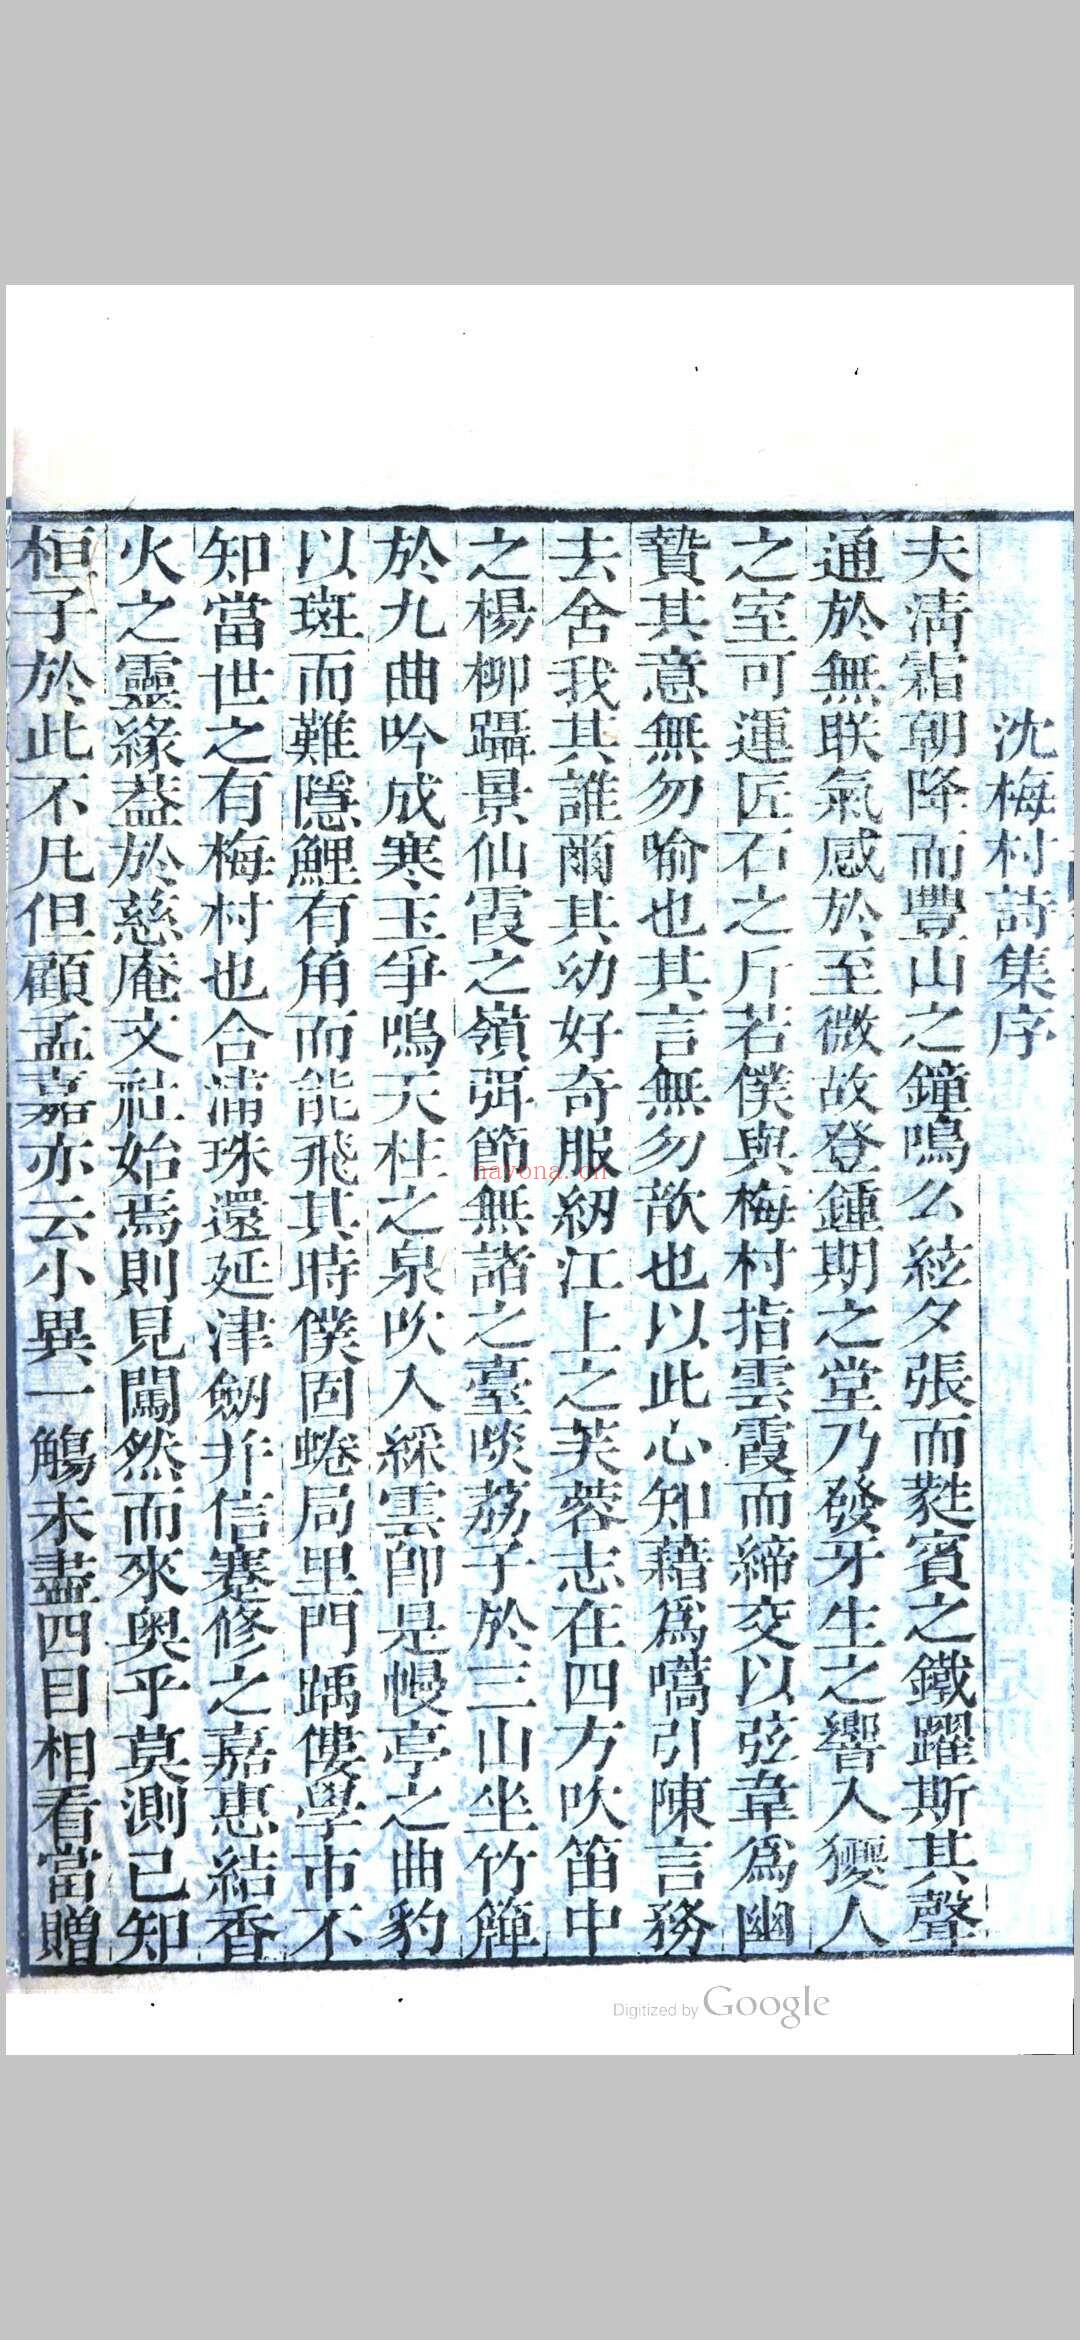 沈梅村詩集序
夫清霜朝降而豐山之鐘鳴么絃夕張而蕤賓之鐵躍斯其聲
通於無联氣感於至微故登鍾期之堂乃發牙生之響入獶人
之室可運匠石之斤若僕與梅村指雲霞而締交以弦韋為幽
贄其意無勿喻也其言無勿歆也以此心知藉為嚆引陳言務
去舍我其誰爾其幼好奇服紉江上之芙蓉志在四方吹笛中
之楊柳躡景仙霞之嶺弭節無諸之臺啖荔子於三山坐竹簰
於九曲吟成寒玉爭鳴天柱之泉吹入綵雲卽是幔亭之曲豹
以斑而難隱鯉有角而能飛其時僕固蜷局里門踽僂學市不
知當世之有梅村也合浦珠還延津劒幷信蹇修之嘉惠結香
火之靈緣葢於慈庵文社始焉則見闖然而來奥乎莫測已知
桓子於此不凡但顧孟嘉亦云小異一觴未盡四目相看當贈
nayona.cn
Digitized by Google